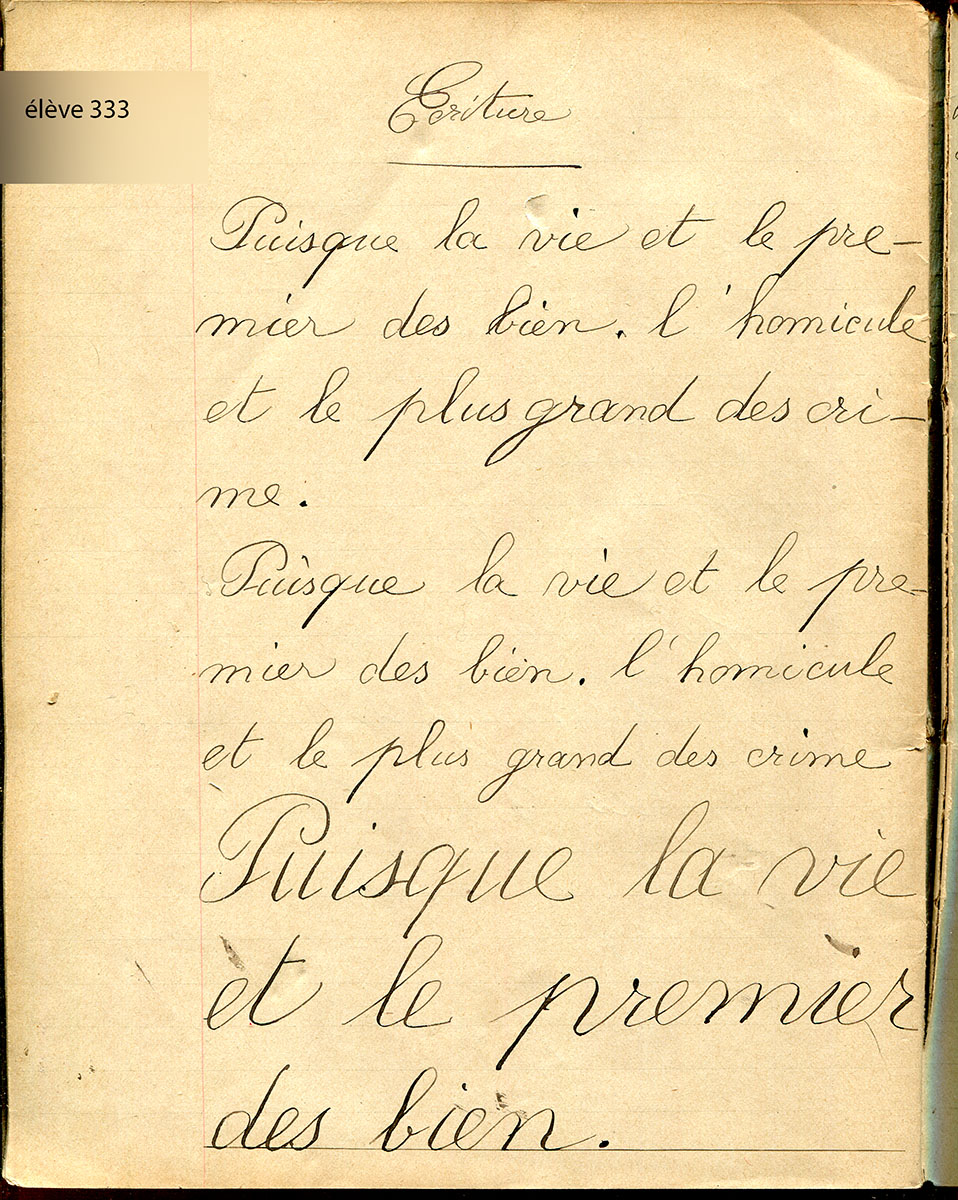 élève 333
Ecriture
Puisque la vie et le pre-
mier des bien. l'homicule
et le plus grand des cri-
me.
Puisque la vie et le pre-
mier des bien. l'homicule
et le plus grand des crime
Puisque la vie
et le premier
des bien.